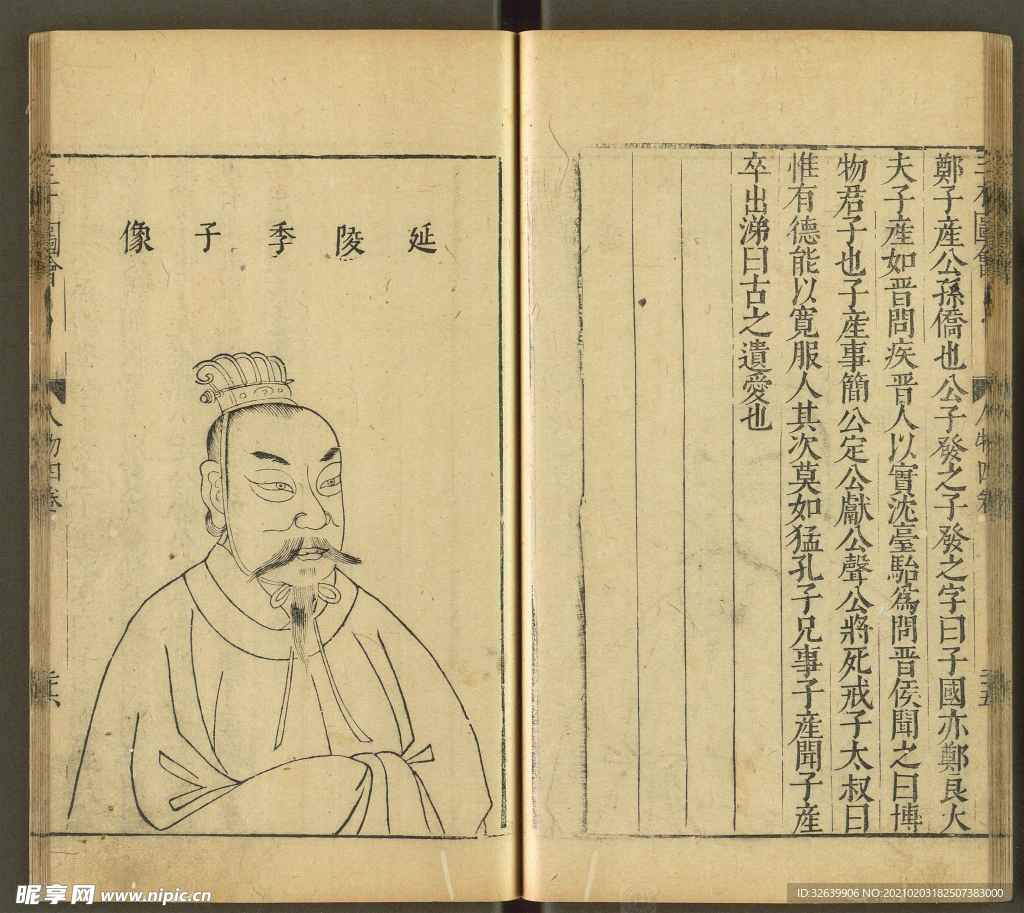 鄭子產公孫僑也公子發之子發之字曰子國亦鄭良大
夫子產如晋問疾晋人以實沈臺駘爲問晋侯聞之曰博
物君子也子產事簡公定公獻公聲公將死戒子太叔曰
惟有德能以寬服人其次莫如猛孔子兄事子產聞子產
卒出涕曰古之遺愛也
延陵季子像
人物四卷
人物四卷
昵享网 www.nipic.cn
ID:32639906 NO:20210203182507383000